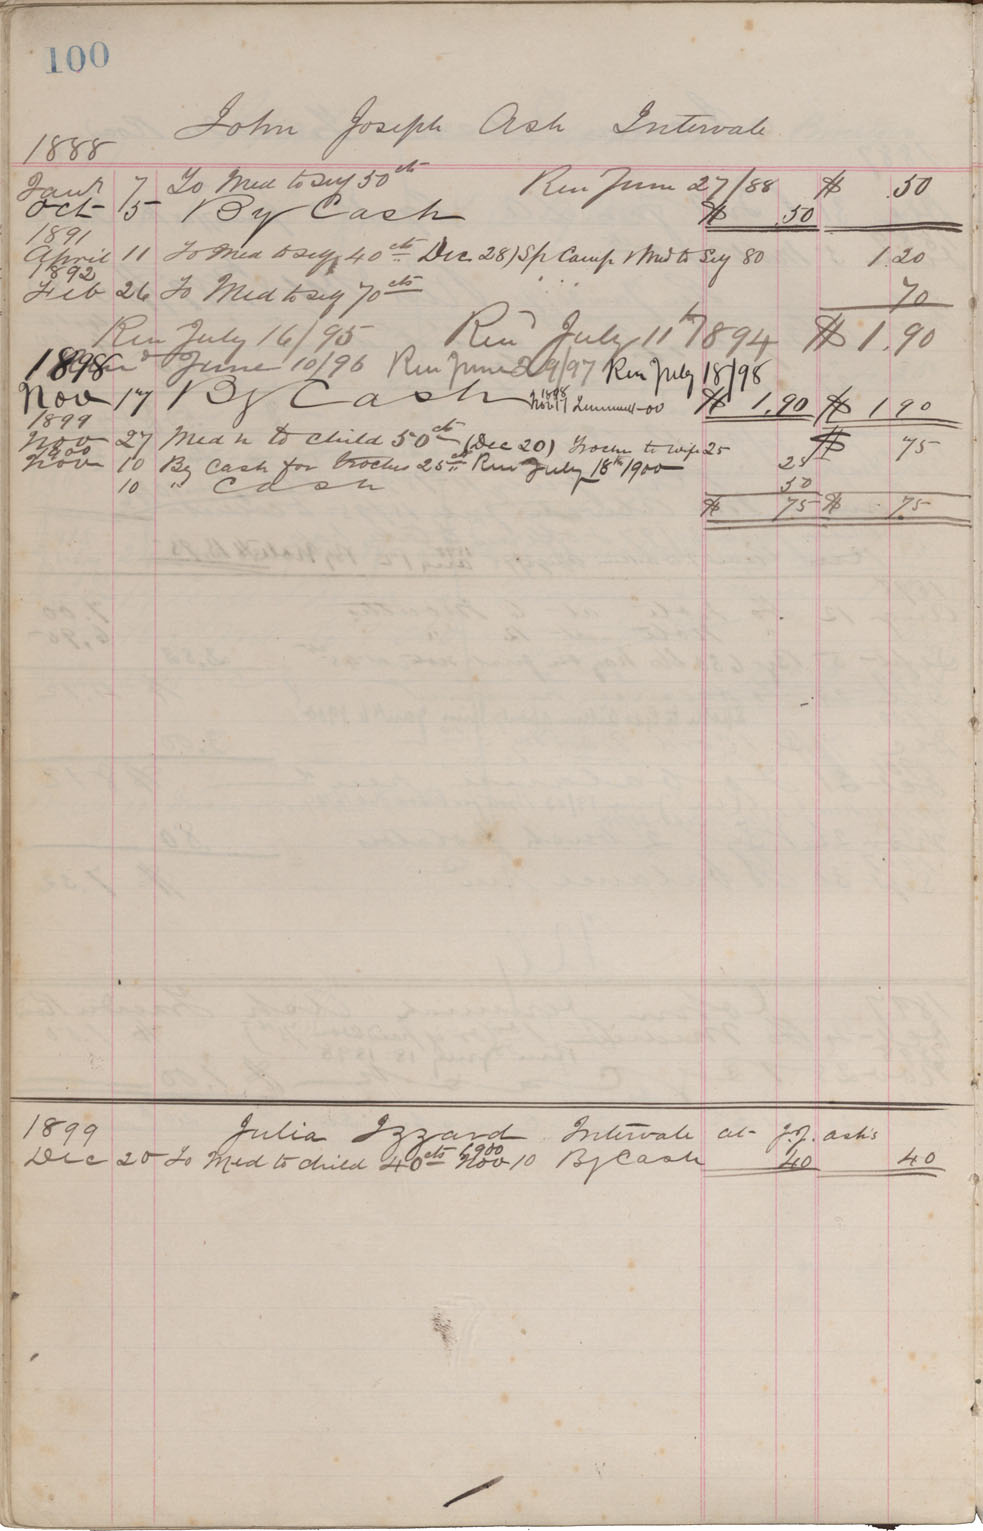 100
John Joseph Ash Intervale
1888
Jany 7 To Med to self 50cts Ren June 27/88 $ .50
Oct 15 By Cash $ .50
1891
April 11 To Med to self 40cts Dec 28) Sp Camp & Med to Self 80 1.20
1892
Feb 26 To Med to self 70cts 70
Ren July 16/95 Ren'd July 11th 1894 $ 1.90
June 10/96 Ren June 29/97 Ren July 18/98
1898
Nov 17 By Cash 1898 Nov 17 $ 1.90 $ 1 90
1899
Nov 27 Med'n to child 50cts (Dec 20) Troches to wife 25 $ 75
1900
Nov 10 By Cash for troches 25cts Ren July 18th 1900 25
10 " Cash 50
$ 75 $ .75
1899 Julia Izzard Intervale at J.J. Ash's
Dec 20 To Med to child 40cts 1900 Nov 10 By Cash 40 40